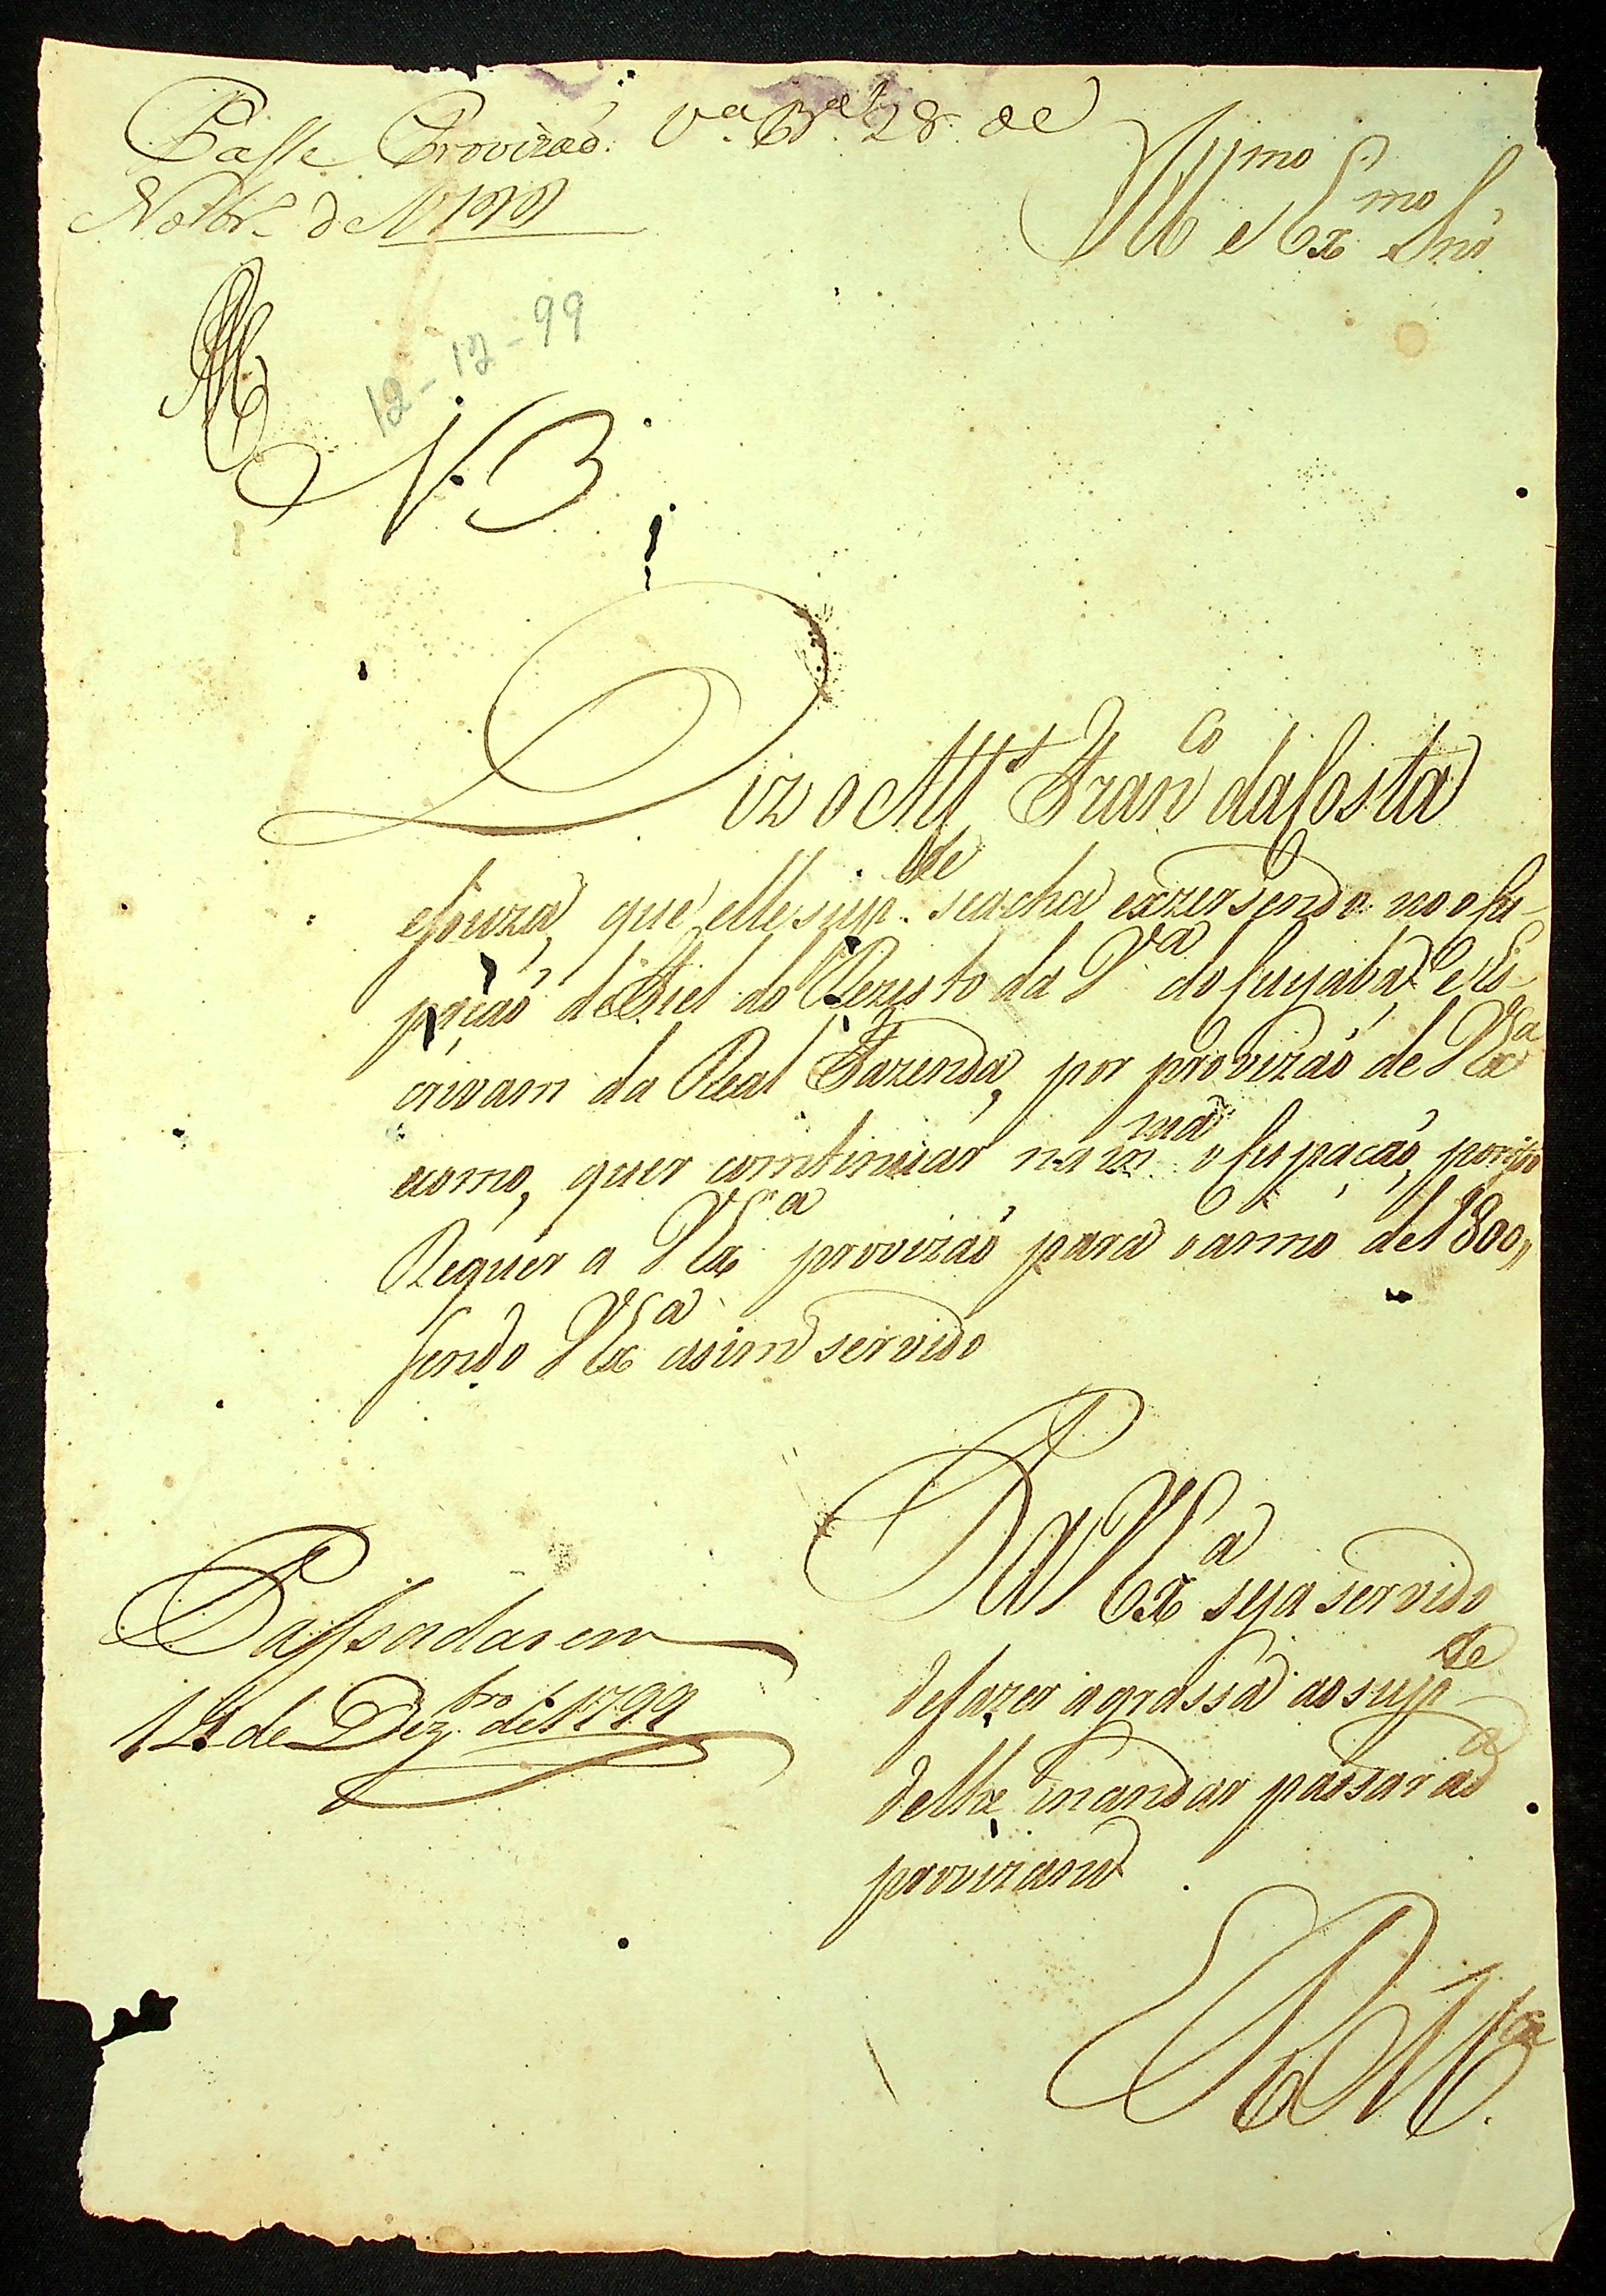 Passe Provizaõ. V.ª B.ª 28 de
Novbr.º de 1799
Ill.mo e Ex.mo Snr.
12-12-99
N. 3
Diz o Alf.s Fran.co da Costa
e Souza, que elle sup.te se acha exzersendo no ocu-
paçaõ de Fiel do Rezisto da V.ª do Cuyaba, e Es-
crivam da Real Fazenda, por provizaõ de V Ex.ª
ecomo, quer continuar na m.ma ocupaçaõ, por iso
Requer a V Ex.ª provizaõ para o anno de 1800,,
sendo V Ex.ª asim servido
P. a V Ex.ª seja servido
de fazer a grassa ao sup.te
de lhe mandar passar a d.ª
provizam
E R M.ce
Passada em
12 de Dez.bro de 1799